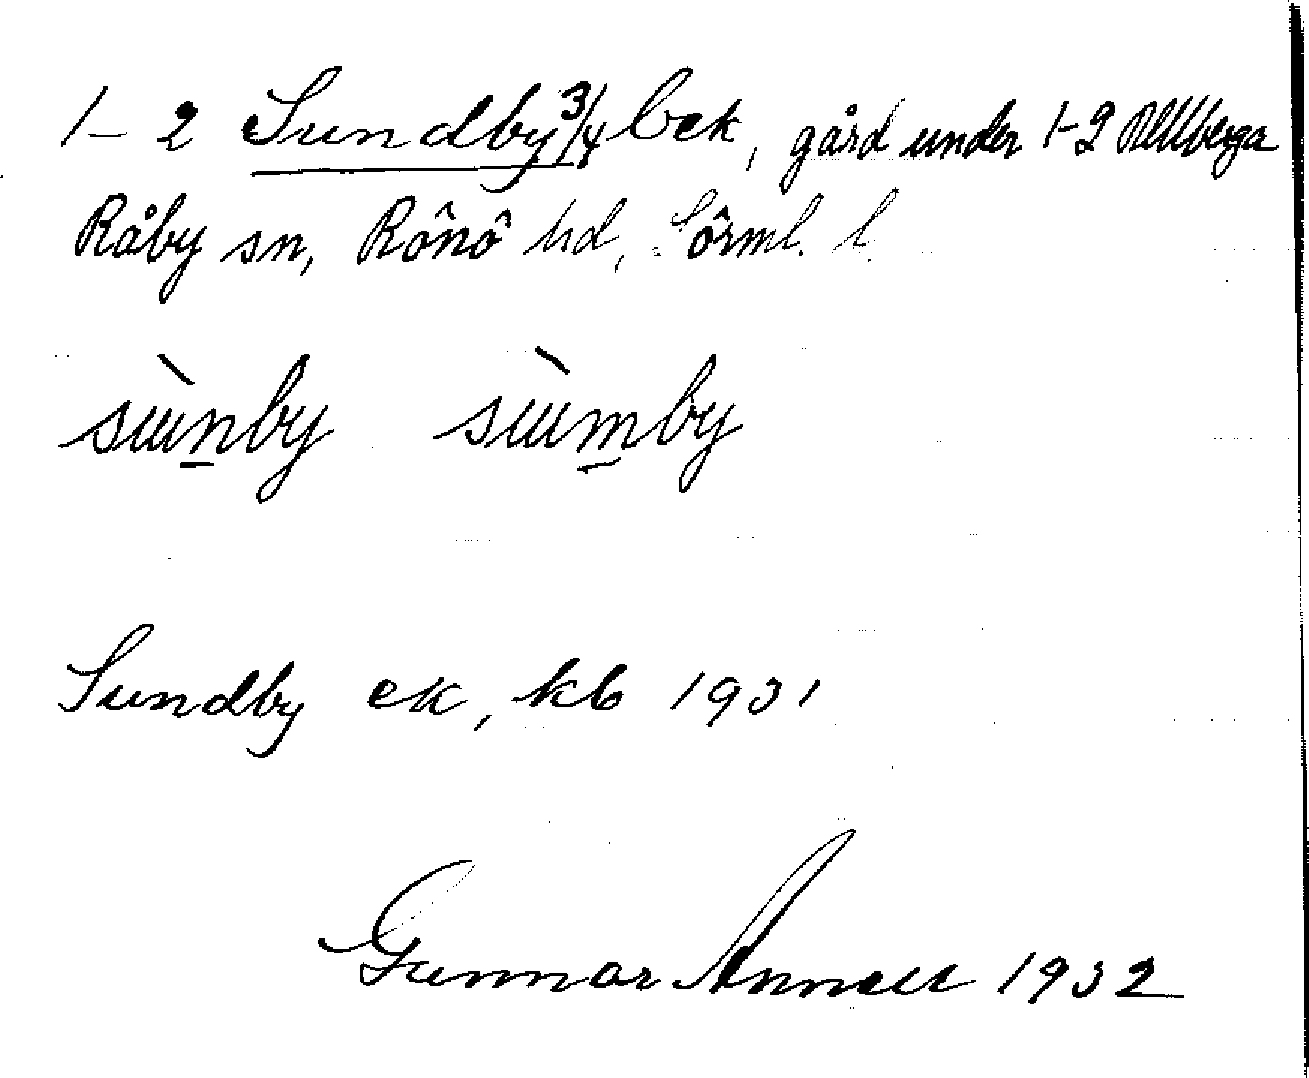 1–2 Sundby 3/4 bek, gård under 1-2
Råby sn, Rönö hd, Sörml. l.
sùnby sùmby
Sundby ek, kb 1931
Gunnar Annell 1932